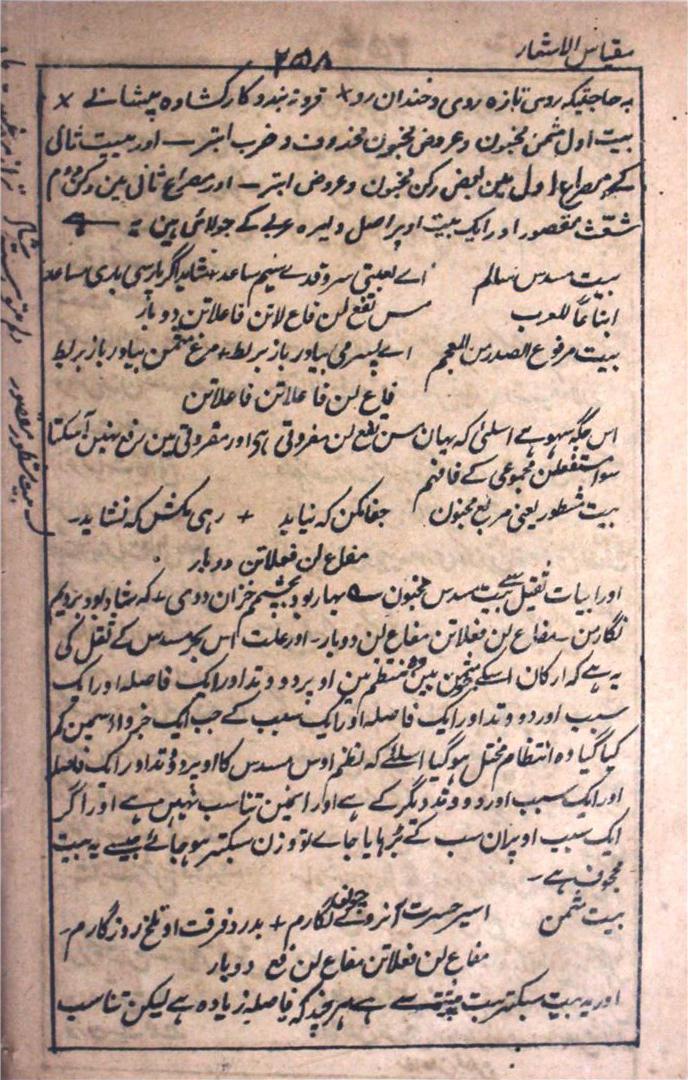 مقیاس الاشعار
۲۵۸
به حاجتیکه روی تازه روی و خندان رو × فرو نه بندد کار کشاده پیشانے ×
بیت اول مثمن مخبون و عروض مخبون محذوف و ضرب ابتر — اور بیت ثانی
کے مصراع اول مین بعض رکن مخبون و عروض ابتر — اور مصراع ثانی مین رکن دوم
مشعث مقصور اور ایک بیت اوپر اصل دایرہ عربی کے جو لائی ہین یہ ہے
بیت مسدس سالم اے لعبتی سرو قدے سیم ساعد + شاید اگر پارسی بدی مساعد
اتباعاً للعرب مس تفع لن فاع لاتن فاعلاتن دوبار
بیت مرفوع الصدر من العجم اے پسر می بیاور باز بربط + مرغ مثمن بیاور باز بربط
فاع لن فاعلاتن فاعلاتن
اس جگہ سہو ہے اسلئی کہ یہان مس تفع لن مفروقی ہی اور مفروقی مین رفع نہین آسکتا
سوا مستفعلن مجموعی کے فافہم
بیت مشطور یعنی مربع مخبون جفا مکن که نیاید + رہی مکش که نشاید
مفاع لن فعلاتن دوبار
اور ابیات ثقیل سے بیت مسدس مخبون ؎ بہار بود بچشمم خزان و دی + که شاد بود برویم
نگار من — مفاع لن فعلاتن مفاع لن دوبار — اور علت اس بحر مسدس کے ثقل کی
یہ ہے کہ ارکان اسکے مثمن مین منتظم ہین اوپر دو وتد اور ایک فاصلہ اور ایک
سبب اور دو وتد اور ایک فاصلہ اور ایک سبب کے جب ایک جزو اسمین کم
کیا گیا وہ انتظام مختل ہوگیا اسلئے کہ نظم اوس مسدس کا اوپر دو وتد اور ایک فاصلہ
اور ایک سبب اور دو وتد دیگر کے ہے اور انمین تناسب نہین ہے اور اگر
ایک سبب اوپر ان سب کے بڑہایا جاے تو وزن سبکتر ہو جائے جیسے یہ بیت
مجوف ہے —
بیت مثمن اسیر حسرت آنروے نگارم + بدرد فرقت او تلخ روزگارم —
مفاع لن فعلاتن مفاع لن فع دوبار
اور یہ بیت سبکتر بیت سے ہے ہرچند کہ فاصلہ زیادہ ہے لیکن تناسب